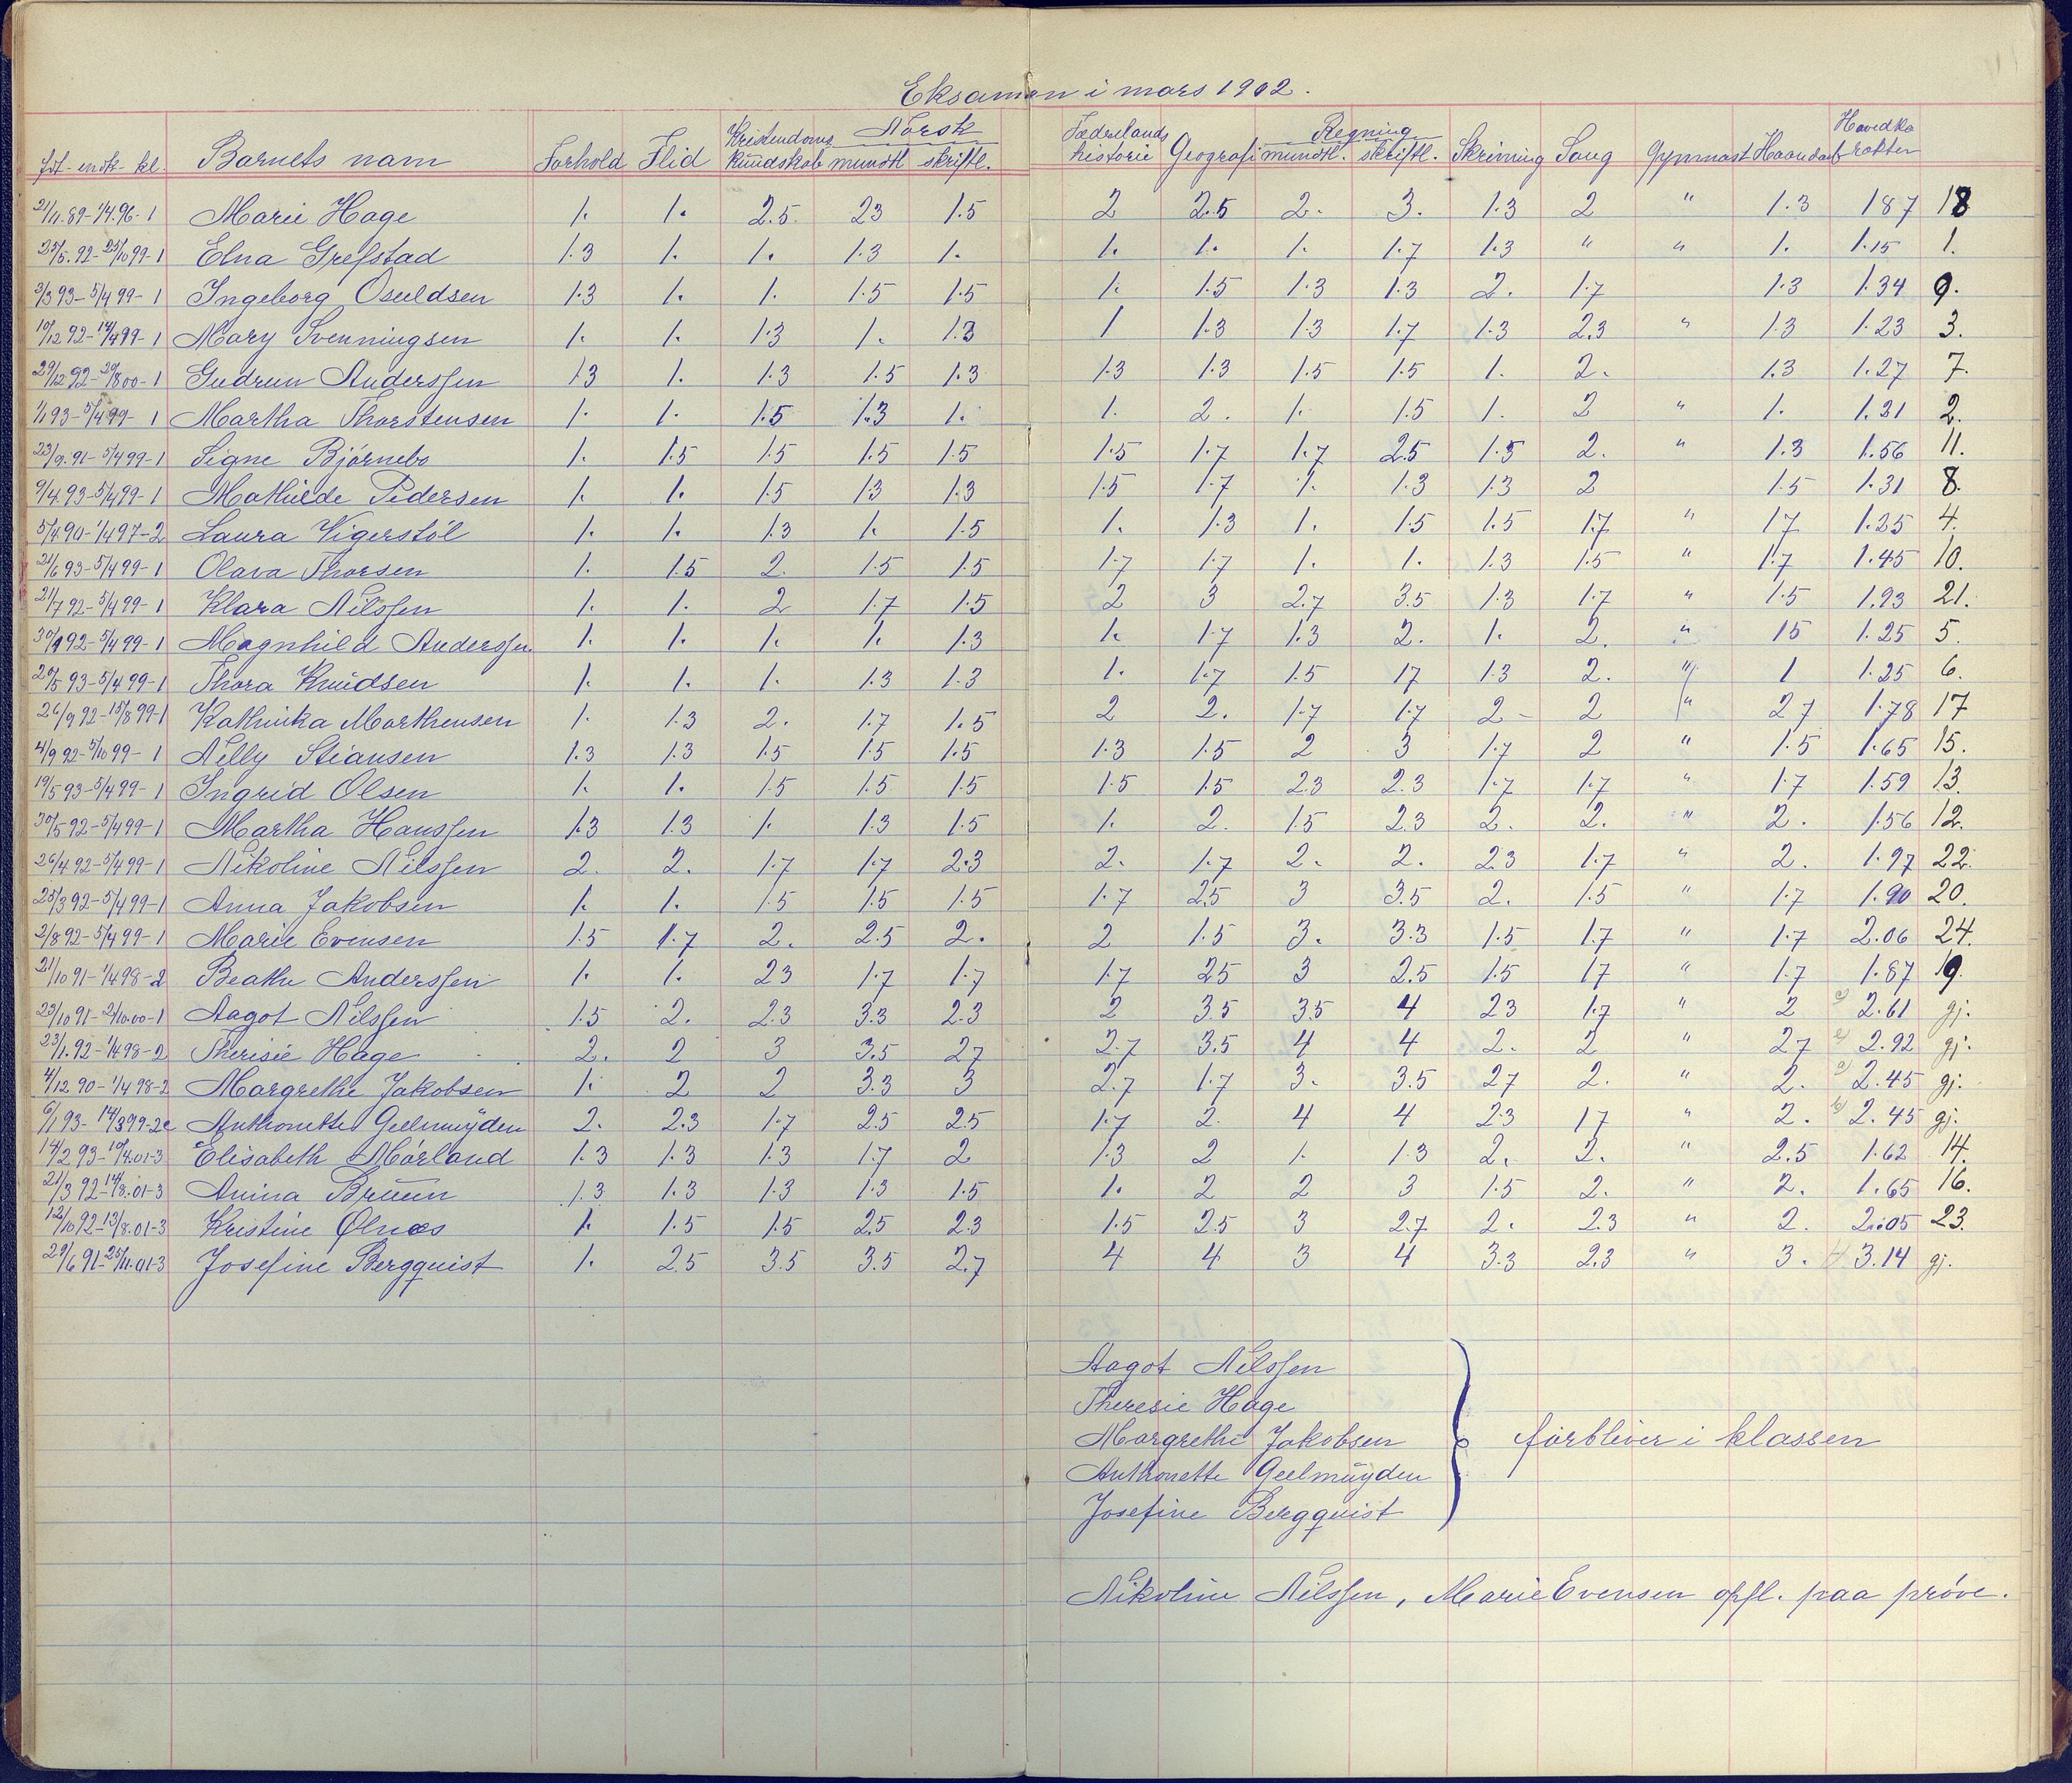 Eksamen i mars 1902.
Kristendoms Norsk Fædrelands Regning Hovedka
fdt - indk - kl. Barnets navn Forhold Flid kundskab mundtl skriftl. historie Geografi mundtl. skriftl. Skrivning Sang Gymnast Haandarb rakter
21/11.89-1/4.96-1 Marie Hage 1. 1. 2.5. 23 1.5 2 2.5 2. 3. 1.3 2 " 1.3 187 18
25/5.92-25/10 99-1 Elna Grefstad 1.3 1. 1. 1.3 1. 1. 1. 1. 1.7 1.3 " " 1. 1.15 1.
3/3 93-5/4 99-1 Ingeborg Osuldsen 1.3 1. 1. 1.5 1.5 1. 1.5 1.3 1.3 2. 1.7 1.3 1.34 9.
10/12 92-14/4 99-1 Mary Svenningsen 1. 1. 1.3 1. 1.3 1 1.3 1.3 1.7 1.3 2.3 " 1.3 1.23 3.
29/12 92-29/8 00-1 Gudrun Anderssen 1.3 1. 1.3 1.5 1.3 1.3 1.3 1.5 1.5 1. 2. 1.3 1.27 7.
1/1 93-5/4 99-1 Martha Thorstensen 1. 1. 1.5 1.3 1. 1. 2. 1. 1.5 1. 2 " 1. 1.21 2.
23/9.91-5/4 99-1 Signe Bjørnebo 1. 1.5 1.5 1.5 1.5 1.5 1.7 1.7 2.5 1.5 2. " 1.3 1.56 11.
9/4.93-5/4 99-1 Mathilde Pedersen 1. 1. 1.5 1.3 1.3 1.5 1.7 1. 1.3 1.3 2 1.5 1.31 8.
5/4.90-1/4 97-2 Laura Vigerstøl 1. 1. 1.3 1. 1.5 1. 1.3 1. 1.5 1.5 1.7 " 1.7 1.25 4.
21/6 93-5/4 99-1 Olava Thorsen 1. 1.5 2. 1.5 1.5 1.7 1.7 1. 1. 1.3 1.5 " 1.7 1.45 10.
21/7 92-5/4 99-1 Klara Nilssen 1. 1. 2 1.7 1.5 2 3 2.7 3.5 1.3 1.7 " 1.5 1.93 21.
30/9 92-5/4 99-1 Magnhild Anderssen 1. 1. 1. 1. 1.3 1. 1.7 1.3 2. 1. 2. " 15 1.25 5.
20/5 93-5/4 99-1 Thora Knudsen 1. 1. 1. 1.3 1.3 1. 1.7 1.5 17 1.3 2. " 1 1.25 6.
26/9 92-15/8 99-1 Kathinka Marthensen 1. 1.3 2. 1.7 1.5 2 2. 1.7 1.7 2- 2 " 27 1.78 17
4/9 92-5/10 99-1 Nelly Stiansen 1.3 1.3 1.5 1.5 1.5 1.3 1.5 2 3 1.7 2 " 1.5 1.65 15.
19/5 93-5/4 99-1 Ingrid Olsen 1. 1. 1.5 1.5 1.5 1.5 1.5 2.3 2.3 1.7 1.7 " 1.7 1.59 13.
30/5 92-5/4 99-1 Martha Hanssen 1.3 1.3 1. 1.3 1.5 1. 2. 1.5 2.3 2. 2. " 2. 1.56 12.
26/4 92-5/4 99-1 Nikoline Nilssen 2. 2. 1.7 1.7 2.3 2. 1.7 2. 2. 23 1.7 " 2. 1.97 22.
25/3 92-5/4 99-1 Anna Jakobsen 1. 1. 1.5 1.5 1.5 1.7 2.5 3 3.5 2. 1.5 " 1.7 1.90 20.
2/8 92-5/4 99-1 Marie Evensen 1.5 1.7 2. 2.5 2. 2 1.5 3. 3.3 1.5 1.7 " 1.7 2.06 24.
21/10 91-1/4 98-2 Beathe Anderssen 1. 1. 23 1.7 1.7 1.7 25 3 2.5 1.5 17 " 1.7 1.87 19.
23/10 91-2/10.00-1 Aagot Nilssen 1.5 2. 2.3 3.3 2.3 2 3.5 3.5 4 23 1.7 " 2 2.61 gj.
23/1.92-1/4 98-2 Theresie Hage 2. 2 3 3.5 27 2.7 3.5 4 4 2. 2 " 27 2.92 gj.
4/12 90-1/4 98-2 Margrethe Jakobsen 1. 2 2 3.3 3 2.7 1.7 3. 3.5 27 2. " 2. 2.45 gj.
6/1 93-14/3 99-2c Anthonette Geelmuyden 2. 2.3 1.7 2.5 2.5 1.7 2. 4 4 2.3 17 " 2. 2.45 gj.
14/2 93-10/4.01-3 Elisabeth Mørland 1.3 1.3 1.3 1.7 2 1.3 2 1. 1.3 2. 2. " 2.5 1.62 14.
21/3 92-14/8.01-3 Anina Bruun 1.3 1.3 1.3 1.3 1.5 1. 2 2 3 1.5 2. " 2. 1.65 16.
12/10 92-13/8.01-3 Kristine Ølnæs 1. 1.5 1.5 2.5 2.3 1.5 2.5 3 2.7 2. 2.3 " 2. 2.05 23.
29/6 91-25/11.01-3 Josefine Bergquist 1. 2.5 3.5 3.5 2.7 4 4 3 4 3.3 2.3 " 3. 3.14 gj.
Aagot Nilssen
Theresie Hage
Margrethe Jakobsen forbliver i klassen
Anthonette Geelmuyden
Josefine Bergquist
Nikoline Nilssen, Marie Evensen opfl. paa prøve.